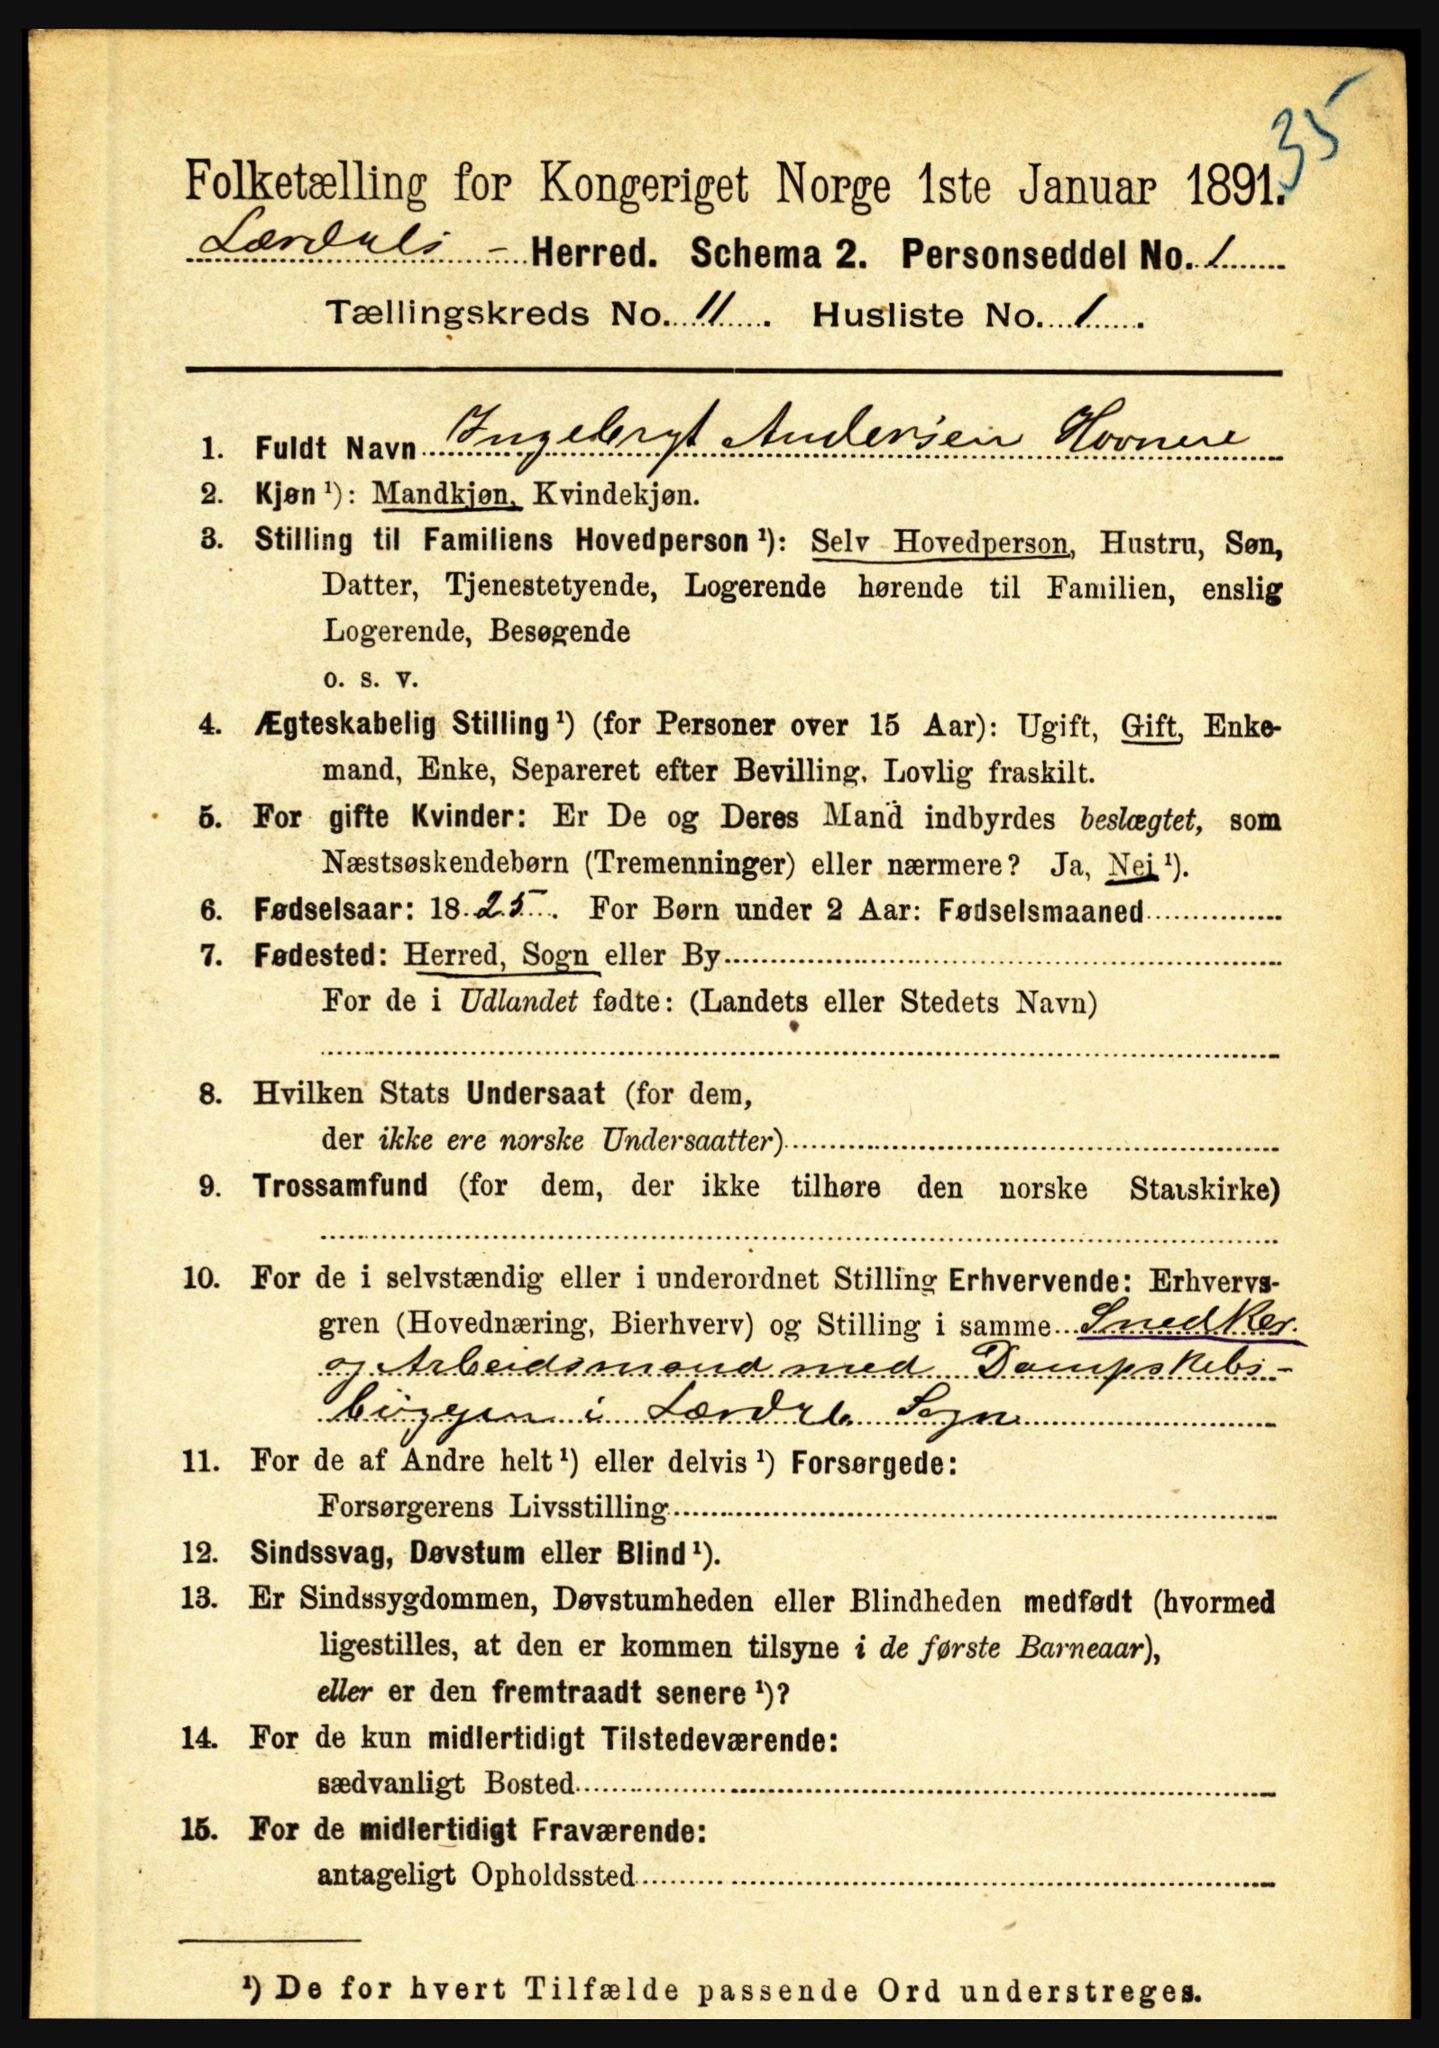 35
Folketælling for Kongeriget Norge 1ste Januar 1891.
Lærdals - Herred. Schema 2. Personseddel No. 1
Tællingskreds No. 11. Husliste No. 1.
1. Fuldt Navn Ingebrygt Andersen Hovnere
2. Kjøn ¹): Mandkjøn, Kvindekjøn.
3. Stilling til Familiens Hovedperson ¹): Selv Hovedperson, Hustru, Søn,
Datter, Tjenestetyende, Logerende hørende til Familien, enslig
Logerende, Besøgende
o. s. v.
4. Ægteskabelig Stilling ¹) (for Personer over 15 Aar): Ugift, Gift, Enke-
mand, Enke, Separeret efter Bevilling, Lovlig fraskilt.
5. For gifte Kvinder: Er De og Deres Mand indbyrdes beslægtet, som
Næstsøskendebørn (Tremenninger) eller nærmere? Ja, Nei ¹).
6. Fødselsaar: 1825. For Børn under 2 Aar: Fødselsmaaned
7. Fødested: Herred, Sogn eller By
For de i Udlandet fødte: (Landets eller Stedets Navn)
8. Hvilken Stats Undersaat (for dem,
der ikke ere norske Undersaatter)
9. Trossamfund (for dem, der ikke tilhøre den norske Statskirke)
10. For de i selvstændig eller i underordnet Stilling Erhvervende: Erhvervs-
gren (Hovednæring, Bierhverv) og Stilling i samme Snedker
og Arbeidsmand med Dampskibs-
i Sogn
11. For de af Andre helt ¹) eller delvis ¹) Forsørgede:
Forsørgerens Livsstilling
12. Sindssvag, Døvstum eller Blind ¹).
13. Er Sindssygdommen, Døvstumheden eller Blindheden medfødt (hvormed
ligestilles, at den er kommen tilsyne i de første Barneaar),
eller er den fremtraadt senere ¹)?
14. For de kun midlertidigt Tilstedeværende:
sædvanligt Bosted
15. For de midlertidigt Fraværende:
antageligt Opholdssted
¹) De for hvert Tilfælde passende Ord understreges.